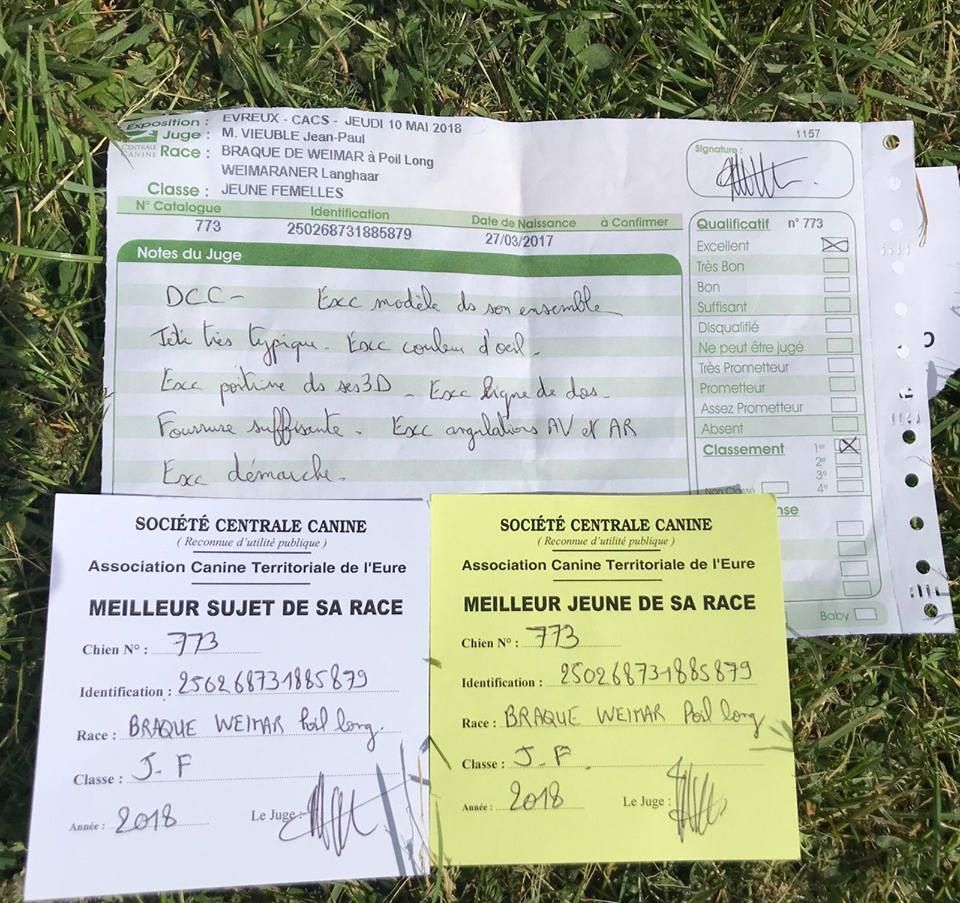 Exposition : EVREUX - CACS - JEUDI 10 MAI 2018
Juge : M. VIEUBLE Jean-Paul
CENTRALE CANINE
Race : BRAQUE DE WEIMAR à Poil Long
WEIMARANER Langhaar
Classe : JEUNE FEMELLES
N° Catalogue Identification Date de Naissance à Confirmer
773 250268731885879 27/03/2017
Notes du Juge
DCC - Exc modèle ds son ensemble
Tête très typique. Exc couleur d'oeil.
Exc poitrine ds ses 3D - Exc ligne de dos.
Fourrure suffisante. Exc angulations AV et AR
Exc démarche.
1157
Signature :
Qualificatif n° 773
Excellent
Très Bon
Bon
Suffisant
Disqualifié
Ne peut être jugé
Très Prometteur
Prometteur
Assez Prometteur
Absent
Classement 1er
2e
3e
4e
Non Classé
Baby
SOCIÉTÉ CENTRALE CANINE
( Reconnue d'utilité publique )
Association Canine Territoriale de l'Eure
MEILLEUR SUJET DE SA RACE
Chien N° : 773
Identification : 250268731885879
Race : BRAQUE WEIMAR Poil long.
Classe : J-F
Année : 2018 Le Juge :
SOCIÉTÉ CENTRALE CANINE
( Reconnue d'utilité publique )
Association Canine Territoriale de l'Eure
MEILLEUR JEUNE DE SA RACE
Chien N° : 773
Identification : 250268731885879
Race : BRAQUE WEIMAR Poil long
Classe : J-F
Année : 2018 Le Juge :